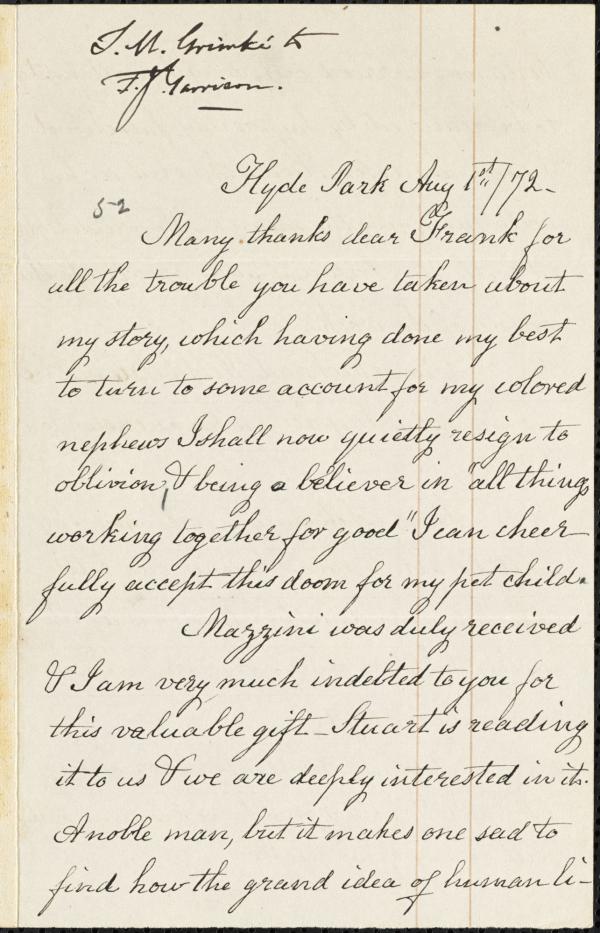 S. M. Grimké to
F. J. Garrison.
Hyde Park Aug 1st/72-
52
Many thanks dear Frank for
all the trouble you have taken about
my story, which having done my best
to turn to some account for my colored
nephews I shall now quietly resign to
oblivion, & being a believer in "all things
working together for good" I can cheer
fully accept this doom for my pet child.
Mazzini was duly received
& I am very much indebted to you for
this valuable gift - Stuart is reading
it to us & we are deeply interested in it.
A noble man, but it makes one sad to
find how the grand idea of human li-